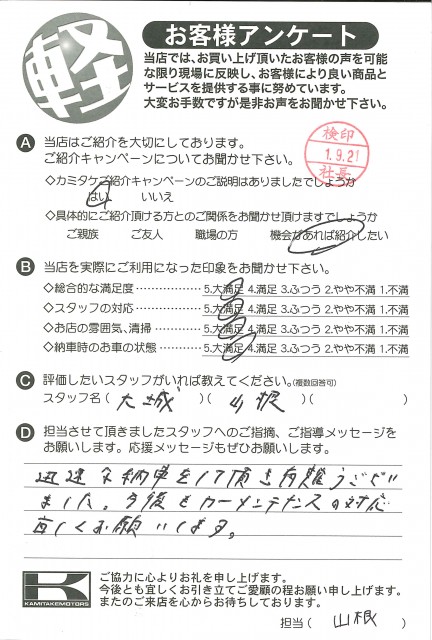 軽
お客様アンケート
当店では、お買い上げ頂いたお客様の声を可能
な限り現場に反映し、お客様により良い商品と
サービスを提供する事に努めています。
大変お手数ですが是非お声をお聞かせ下さい。
検印
1.9.21
社長
A 当店はご紹介を大切にしております。
ご紹介キャンペーンについてお聞かせ下さい。
◇カミタケご紹介キャンペーンのご説明はありましたでしょうか
はい いいえ
◇具体的にご紹介頂ける方とのご関係をお聞かせ頂けますでしょうか
ご親族 ご友人 職場の方 機会があれば紹介したい
B 当店を実際にご利用になった印象をお聞かせ下さい。
◇総合的な満足度 ⋯⋯⋯⋯⋯ 5.大満足 4.満足 3.ふつう 2.やや不満 1.不満
◇スタッフの対応 ⋯⋯⋯⋯⋯ 5.大満足 4.満足 3.ふつう 2.やや不満 1.不満
◇お店の雰囲気、清掃 ⋯⋯⋯ 5.大満足 4.満足 3.ふつう 2.やや不満 1.不満
◇納車時のお車の状態 ⋯⋯⋯ 5.大満足 4.満足 3.ふつう 2.やや不満 1.不満
C 評価したいスタッフがいれば教えてください。(複数回答可)
スタッフ名 ( 大城 )( 山根 )( )
D 担当させて頂きましたスタッフへのご指摘、ご指導メッセージを
お願いします。応援メッセージもぜひお願いします。
迅速な納車をして頂き有難うござい
ました。今後もカーメンテナンスの対応
宜しくお願いします。
K
KAMITAKEMOTORS
ご協力に心よりお礼を申し上げます。
今後とも宜しくお引き立てご愛顧の程お願い申し上げます。
またのご来店を心からお待ちしております。
担当 ( 山根 )